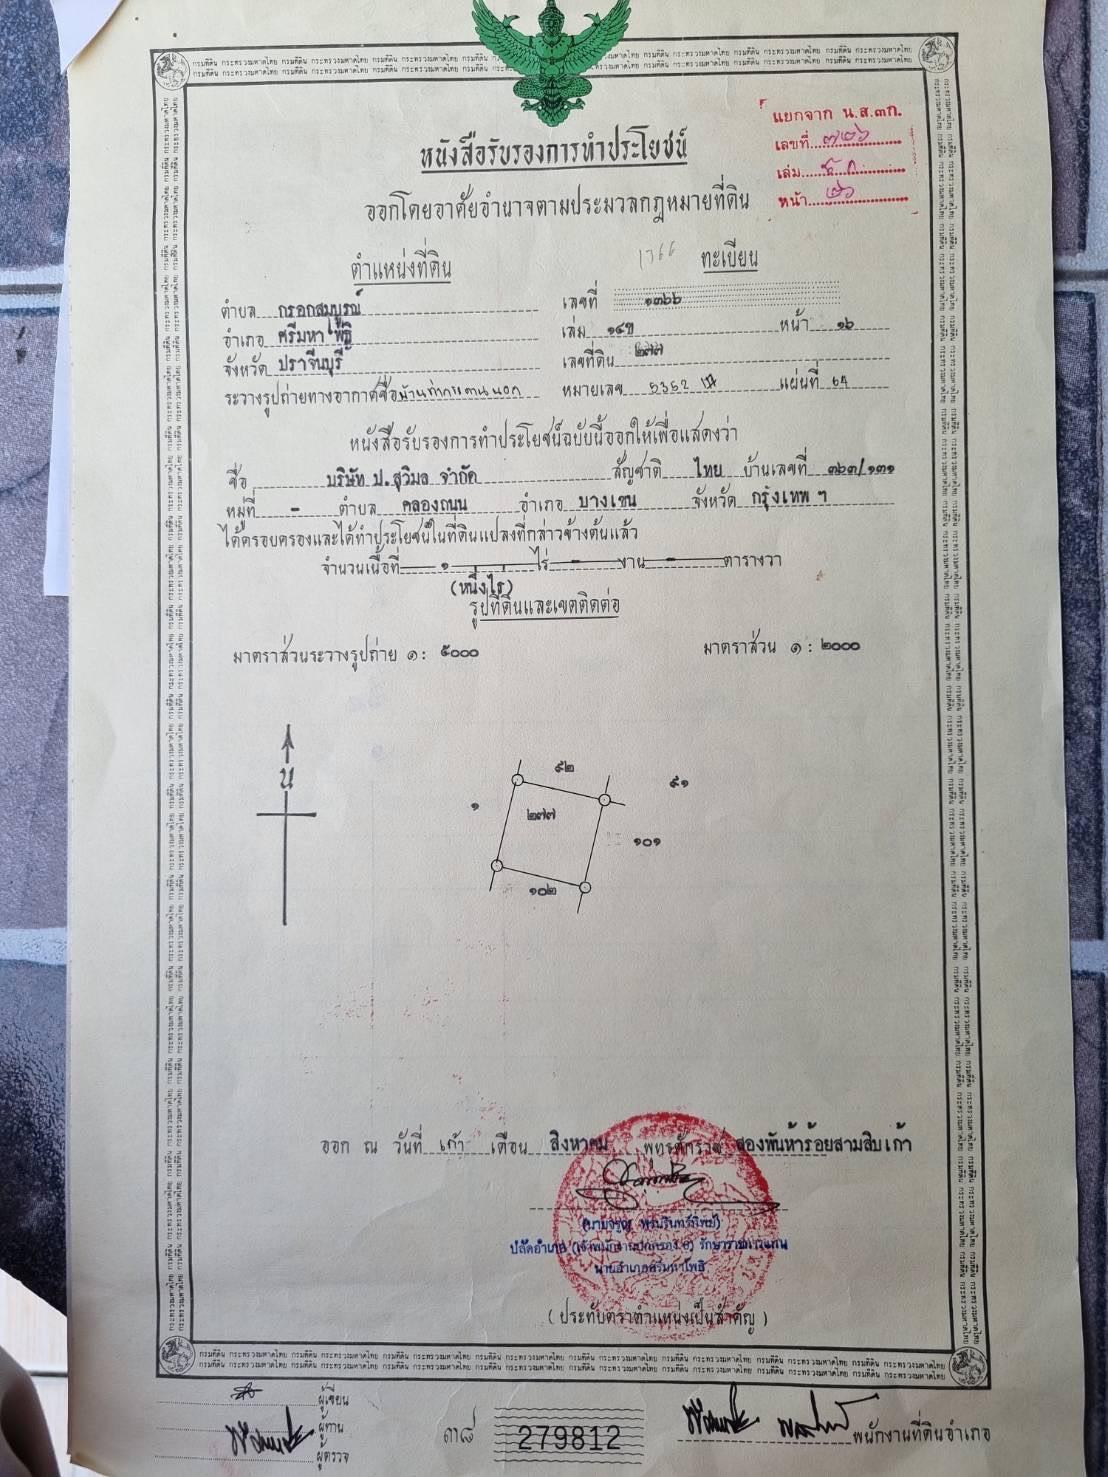 กรมที่ดิน กระทรวงมหาดไทย
แยกจาก น.ส.๓ก.
เลขที่ ๗๒๖
เล่ม
หน้า ๒๖
หนังสือรับรองการทำประโยชน์
ออกโดยอาศัยอำนาจตามประมวลกฎหมายที่ดิน
ตำแหน่งที่ดิน 1366 ทะเบียน
ตำบล กรอกสมบูรณ์ เลขที่ ๑๓๖๖
อำเภอ ศรีมหาโพธิ เล่ม ๑๔ข หน้า ๑๖
จังหวัด ปราจีนบุรี เลขที่ดิน ๒๗๗
ระวางรูปถ่ายทางอากาศชื่อ หมายเลข 5352 แผ่นที่ 64
หนังสือรับรองการทำประโยชน์ฉบับนี้ออกให้เพื่อแสดงว่า
ชื่อ บริษัท ป.สุวิมล จำกัด สัญชาติ ไทย บ้านเลขที่ ๓๖๗/๑๓๑
หมู่ที่ - ตำบล คลองถนน อำเภอ บางเขน จังหวัด กรุงเทพ ฯ
ได้ครอบครองและได้ทำประโยชน์ในที่ดินแปลงที่กล่าวข้างต้นแล้ว
จำนวนเนื้อที่ ๑ ไร่ - งาน - ตารางวา
(หนึ่งไร่)
รูปที่ดินและเขตติดต่อ
มาตราส่วนระวางรูปถ่าย ๑ : ๕๐๐๐ มาตราส่วน ๑ : ๒๐๐๐
น
๕๒
๑ ๕๑
๒๗๗
๑๐๑
๑๐๒
ออก ณ วันที่ เก้า เดือน สิงหาคม พุทธศักราช สองพันห้าร้อยสามสิบเก้า
นายอำเภอศรีมหาโพธิ
( ประทับตราตำแหน่งเป็นสำคัญ )
ผู้เขียน
ผู้ทาน
ผู้ตรวจ
279812
พนักงานที่ดินอำเภอ